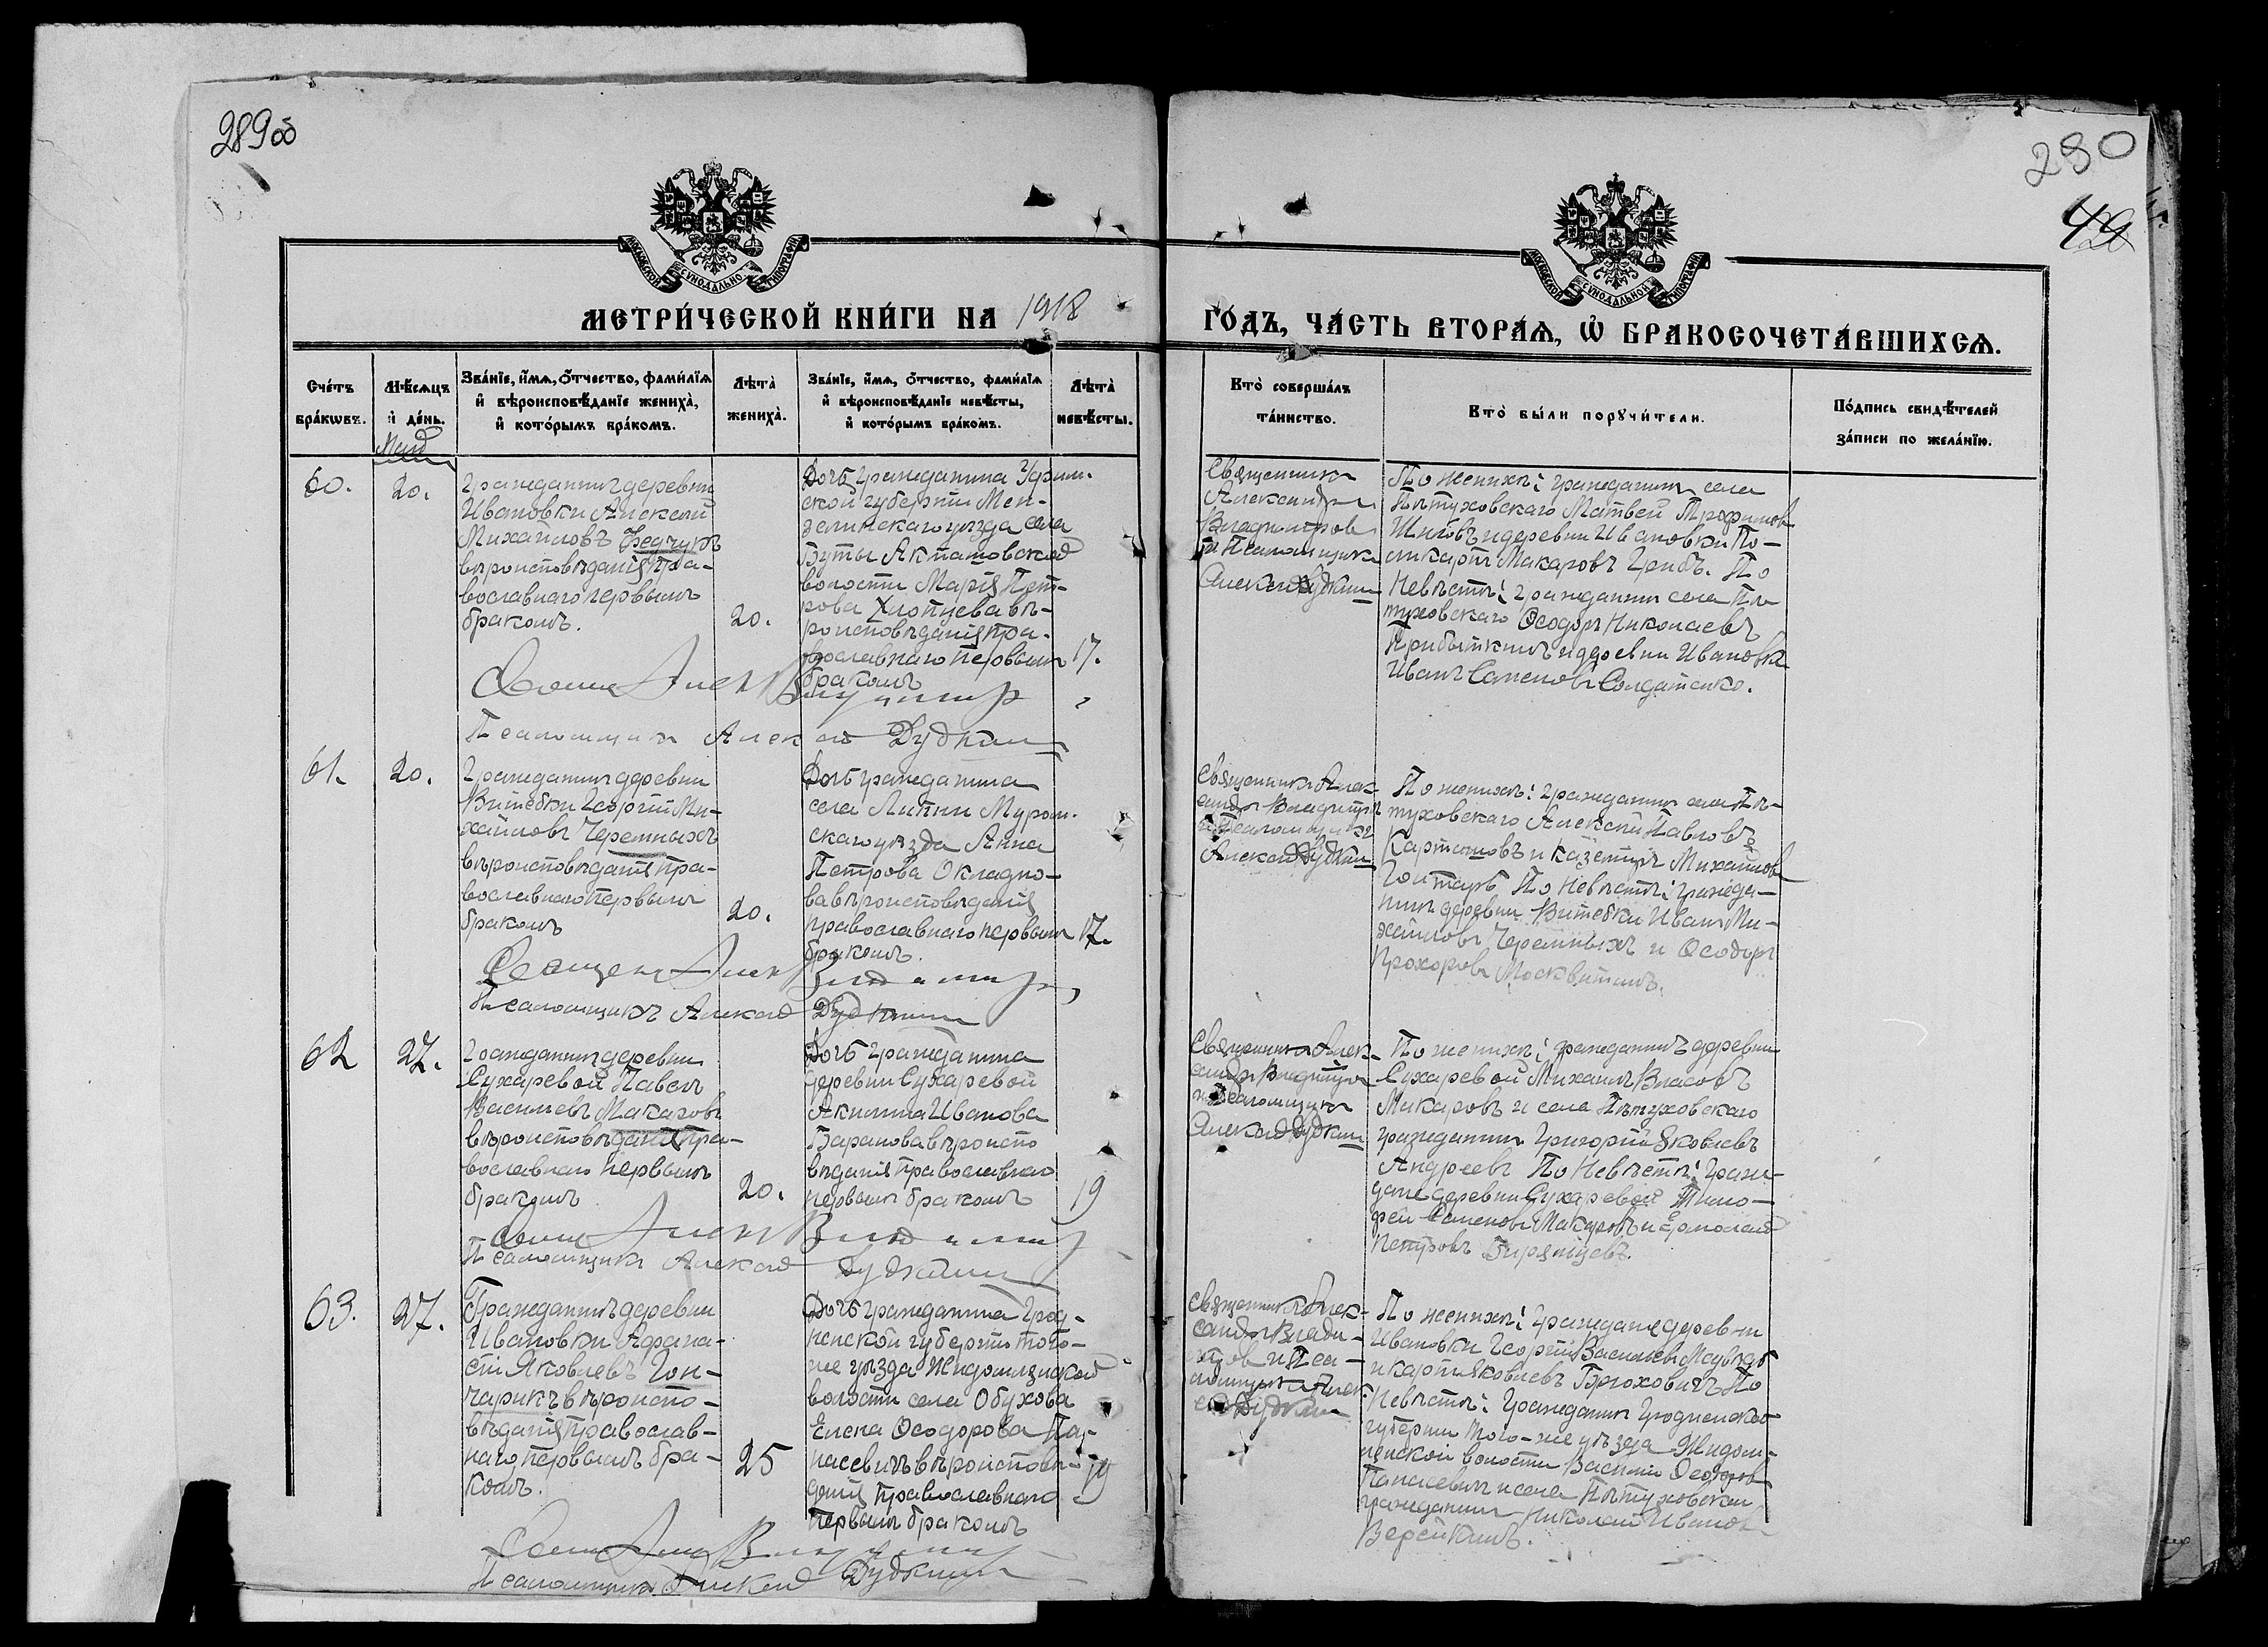 289об
280
49
МОСКОВСКОЙ СУНОДАЛЬНОЙ ТИПОГРАФІИ
МОСКОВСКОЙ СУНОДАЛЬНОЙ ТИПОГРАФІИ
МЕТРИ́ЧЕСКОЙ КНИ́ГИ НА 1918
ГО́ДЪ, ЧА́СТЬ ВТОРА́Ѧ, Ѡ҆ БРАКОСОЧЕТА́ВШИХСѦ.
Сче́тъ бра́кѡвъ.
Мѣ́сѧцъ и҆ де́нь.
Зва́нїе, и҆́мѧ, ѻ҆́тчество, фами́лїѧ
и҆ вѣроисповѣ́данїе жениха̀,
и҆ кото́рымъ бра́комъ.
Лѣта̀ жениха̀.
Зва́нїе, и҆́мѧ, ѻ҆́тчество, фами́лїѧ
и҆ вѣроисповѣ́данїе невѣ́сты,
и҆ кото́рымъ бра́комъ.
Лѣта̀ невѣ́сты.
Кто̀ соверша́лъ та́инство.
Кто̀ бы́ли порꙋчи́тели.
По́дпись свидѣ́телей за́писи по жела́нїю.
60.
20.
Гражданинъ деревни
Ивановки Алексей
Михайловъ Федчукъ
вѣроисповѣданія пра-
вославнаго первымъ
бракомъ.
20.
Дочь гражданина Уфим-
ской губерніи Мен-
зелинскаго уѣзда села
Буты Акташовской
волости Марія Пет-
рова Хлопцева вѣ-
роисповѣданія пра-
вославнаго первымъ
бракомъ
17.
Священникъ
Александръ
Владиміров
и Псаломщикъ
Алексей Дудкин
По женихѣ: гражданинъ села
Пѣтуховскаго Матвей Трофимовъ
Шиловъ и деревни Ивановки По-
ликарпъ Макаровъ Грибъ. По
Невѣстѣ: гражданин села Пѣ-
туховскаго Ѳеодоръ Николаевъ
Прибыткинъ и деревни Ивановки
Иванъ Семеновъ Солдатенко.
Псаломщикъ Алексей Дудкин
61.
20.
Гражданинъ деревни
Витебки Георгій Ми-
хайловъ Черемныхъ
вѣроисповѣданія пра-
вославнаго первымъ
бракомъ
20.
Дочь гражданина
села Липни Муром-
скаго уѣзда Анна
Петрова Окладно-
ва вѣроисповѣданія
православнаго первымъ
бракомъ.
17.
Священникъ Алек-
сандръ Владиміров
и Псаломщикъ
Алексей Дудкин
По женихѣ: гражданинъ села Пѣ-
туховскаго Алексей Павловъ
Карташовъ и Каземіръ Михайловъ
Гонтарь. По Невѣстѣ: гражда-
нинъ деревни Витебки Иванъ Ми-
хайловъ Черемныхъ и Ѳеодоръ
Прохоровъ Москвитинъ.
Псаломщикъ Алексей Дудкин
62
27.
Гражданинъ деревни
Сухаревой Павелъ
Васильевъ Макаровъ
вѣроисповѣданія пра-
вославнаго первымъ
бракомъ
20.
Дочь гражданина
деревни Сухаревой
Акилина Иванова
Баранова вѣроиспо
вѣданія православнаго
первымъ бракомъ
19
Священникъ Алек-
сандръ Владиміров
и Псаломщикъ
Алексей Дудкин
По женихѣ: гражданинъ деревни
Сухаревой Михаилъ Власовъ
Макаровъ и села Пѣтуховскаго
гражданинъ Григорій Яковлевъ
Андреевъ По Невѣстѣ: граж-
дане деревни Сухаревой Тимо-
фей Семеновъ Макаровъ и Ермолай
Петровъ
Псаломщикъ Алексей Дудкин
63.
27.
Гражданинъ деревни
Ивановки Афана-
сій Яковлевъ Гон-
чарикъ вѣроиспо-
вѣданія православ-
наго первымъ бра-
комъ.
25
Дочь гражданина Грод-
ненской губерніи того-
же уѣзда Жидомлянской
волости села Обухова
Елена Ѳеодорова Па-
насевичъ вѣроисповѣ-
данія православнаго
первымъ бракомъ
19
Священникъ Алек-
сандръ Влади-
міров и Пса-
ломщикъ Алек-
сей Дудкин
По женихѣ: Граждане деревни
Ивановки Георгій Васильевъ Медвѣдь
и Карпъ Яковлевъ Брюховичъ По
Невѣстѣ: Гражданин Гродненской
губерніи того-же уѣзда Жидом-
ленской волости Василій Ѳеодоров
Панасевичъ и села Пѣтуховскаго
гражданинъ Николай Иванов
Верейкинъ.
Псаломщикъ Алексей Дудкин